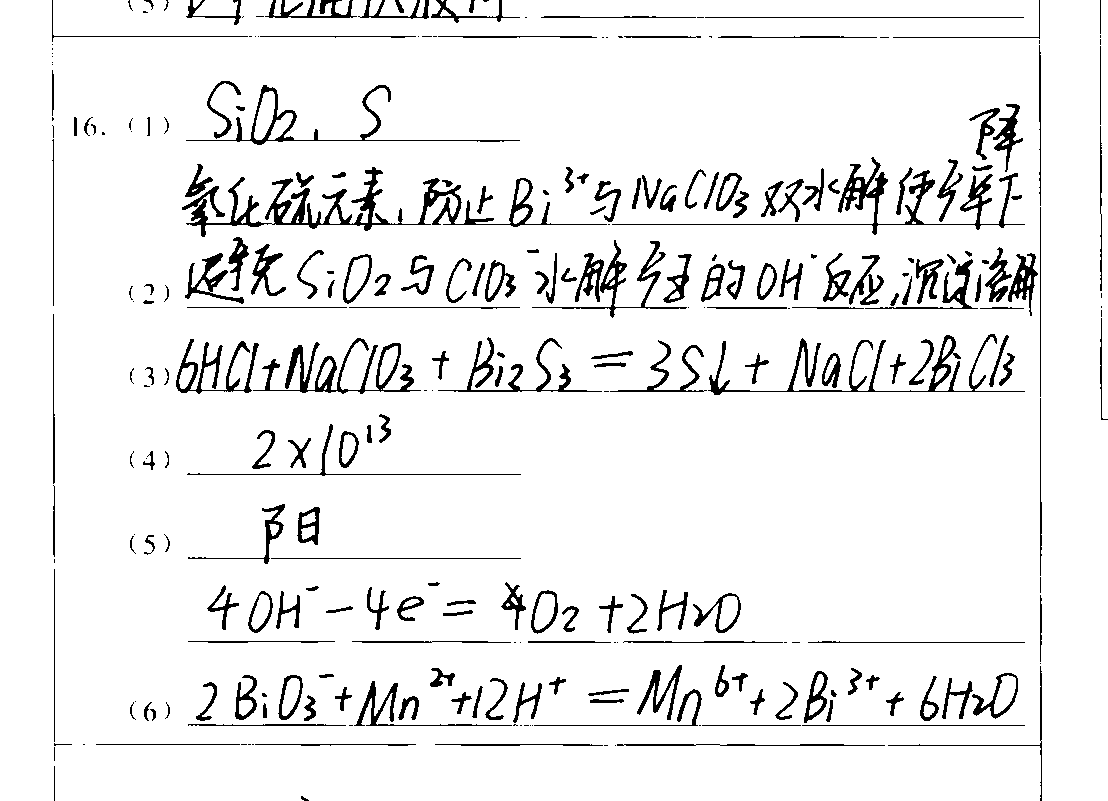 (3)
16. (1) SiO2, S
降
氧化硫元素,防止Bi³⁺与NaClO3双水解使产率下
(2) 避免SiO2与ClO3⁻水解产生的OH⁻反应,沉淀溶解
(3) 6HCl+NaClO3+Bi2S3=3S↓+NaCl+2BiCl3
(4) 2×10¹³
(5) 阳
4OH⁻-4e⁻=O2+2H2O
(6) 2BiO3⁻+Mn²⁺+12H⁺=Mn⁶⁺+2Bi³⁺+6H2O